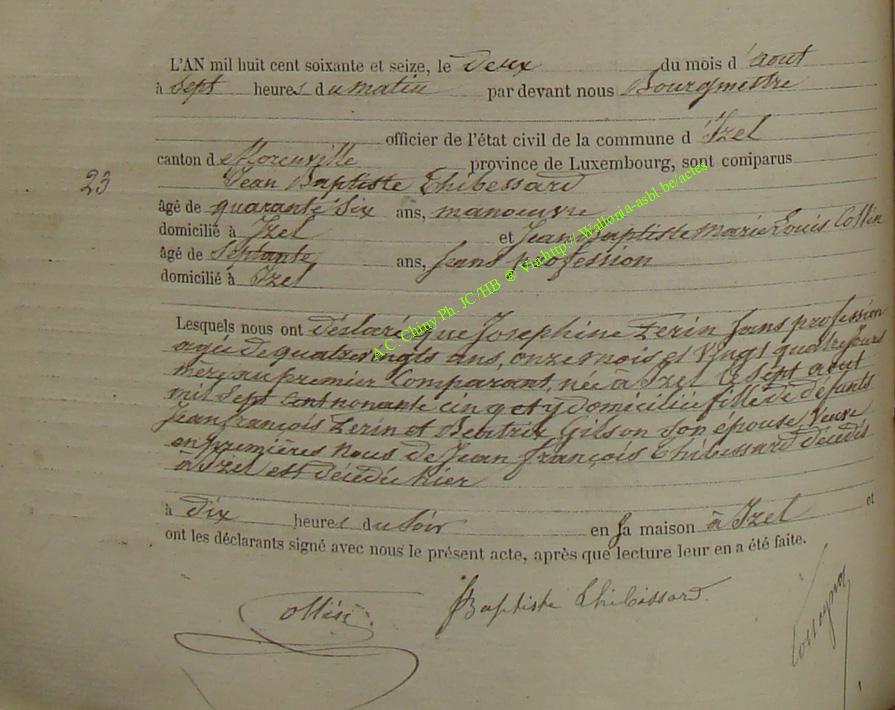 L'AN mil huit cent soixante et seize, le deux du mois d'août
à sept heures du matin par devant nous Bourgmestre
officier de l'état civil de la commune d'Izel
canton de florenville province de Luxembourg, sont comparus
23
Jean Baptiste Thibessard
âgé de quarante six ans, manoeuvre
domicilié à Izel et Jean Baptiste Marie Louis Collin
âgé de septante ans, sans profession
domicilié à Izel
A.C. Chiny Ph. JC/HB ® Via http://Wallonia-asbl.be/actes
Lesquels nous ont déclaré que Josephine Zerin sans profession
agée de quatrevingts ans, onze mois et vingt quatre jours
mere au premier Comparant, née à Izel le sept aout
mil sept cent nonante cinq et y domiciliée fille de défunts
Jean françois Zerin et Beatrix Gilson son épouse Veuve
en premières nous de Jean françois Thibessard décédé
à Izel est décédée hier
à dix heures du soir en sa maison à Izel et
ont les déclarants signé avec nous le présent acte, après que lecture leur en a été faite.
Collin JBaptiste Thibessard